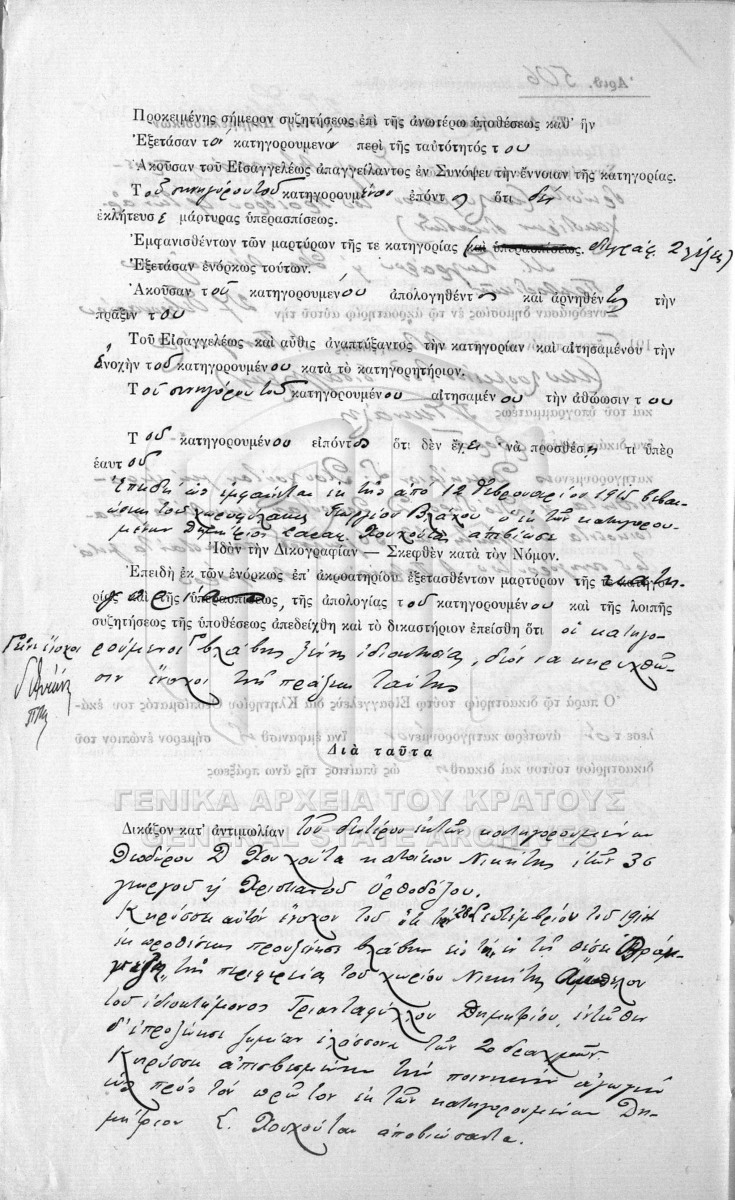 Ἀριθ. 506
Προκειμένης σήμερον συζητήσεως ἐπὶ τῆς ἀνωτέρω ὑποθέσεως καθ' ἣν
Ἐξετάσαν τον κατηγορουμενον περὶ τῆς ταυτότητός του
Ἀκοῦσαν τοῦ Εἰσαγγελέως ἀπαγγείλαντος ἐν Συνόψει τὴν ἔννοιαν τῆς κατηγορίας.
Τοῦ συνηγόρου τοῦ κατηγορουμένου εἰπόντος ὅτι δὲν
ἐκλήτευσε μάρτυρας ὑπερασπίσεως.
Ἐμφανισθέντων τῶν μαρτύρων τῆς τε κατηγορίας (καὶ ὑπερασπίσεως.
Ἐξετάσαν ἐνόρκως τούτων.
Ἀκοῦσαν τοῦ κατηγορουμένου ἀπολογηθέντος καὶ ἀρνηθέντος τὴν
πρᾶξιν του
Τοῦ Εἰσαγγελέως καὶ αὖθις ἀναπτύξαντος τὴν κατηγορίαν καὶ αἰτησαμένου τὴν
ἐνοχὴν τοῦ κατηγορουμένου κατὰ τὸ κατηγορητήριον.
Τοῦ συνηγόρου τοῦ κατηγορουμένου αἰτησαμένου τὴν ἀθώωσιν του
Τοῦ κατηγορουμένου εἰπόντος ὅτι δὲν ἔχει νὰ προσθέσῃ τι ὑπὲρ
ἑαυτοῦ
Ἐπειδὴ ὡς ἐμφαίνεται ἐκ τῆς ἀπὸ 12 Φεβρουαρίου 1915 βεβαι-
ώσεως τοῦ χωροφύλακος Γεωργίου Βλάχου ὁ ἐκ τῶν κατηγορου-
μένων Δημήτριος Χουχούτας ἀπεβίωσε
Ἰδὸν τὴν Δικογραφίαν — Σκεφθὲν κατὰ τὸν Νόμον.
Ἐπειδὴ ἐκ τῶν ἐνόρκως ἐπ' ἀκροατηρίου ἐξετασθέντων μαρτύρων τῆς κατηγο-
ρίας καὶ τῆς ὑπερασπίσεως, τῆς ἀπολογίας τοῦ κατηγορουμένου καὶ τῆς λοιπῆς
συζητήσεως τῆς ὑποθέσεως ἀπεδείχθη καὶ τὸ δικαστήριον ἐπείσθη ὅτι οἱ κατηγο-
ρούμενοι βλάβης ξένης ἰδιοκτησίας, διὸ νὰ κηρυχθῶ-
σιν ἔνοχοι τῆς πράξεως ταύτης
Διὰ ταῦτα
ΓΕΝΙΚΑ ΑΡΧΕΙΑ ΤΟΥ ΚΡΑΤΟΥΣ
GENERAL STATE ARCHIVES
Δικάζον κατ' ἀντιμωλίαν τοῦ δευτέρου ἐκ τῶν κατηγορουμένων
Θεοδώρου Δ Χουχούτα κατοίκου Νικήτης ἐτῶν 36
γεωργοῦ ἢ Χριστιανοῦ Ὀρθοδόξου.
Κηρύσσει αὐτὸν ἔνοχον τοῦ ὅτι τὴν 28 Σεπτεμβρίου τοῦ 1914
ἐκ προθέσεως προὐξένησε βλάβην εἰς τὴν ἐν τῇ θέσει
τῆς περιφερείας τοῦ χωρίου Νικήτης ἄμπελον
τοῦ ἰδιοκτήμονος Τριανταφύλλου Δημητρίου, ἐντεῦθεν
δ' ἐπροξένησε ζημίαν ἐλάσσονα τῶν 20 δραχμῶν.
Κηρύσσει ἀπεσβεσμένην τὴν ποινικὴν ἀγωγὴν
ὡς πρὸς τὸν πρῶτον ἐκ τῶν κατηγορουμένων Δη-
μήτριον Σ. Χουχούταν ἀποβιώσαντα.